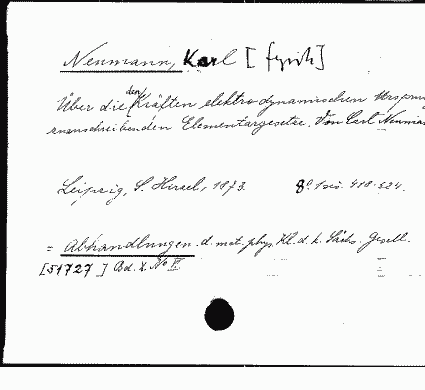 Neumann, Karl [fysik]
Über die den Kräften elektrodynamischen Ursprun
zuschreibenden Elementargesetze. Von Carl Neuman
Leipzig, S. Hirzel, 1873. 8°. 1 s. 418-524.
= Abhandlungen. d. mat. phys. Kl. d. k. Sächs. Gesell.
[51727] Bd. X. No II